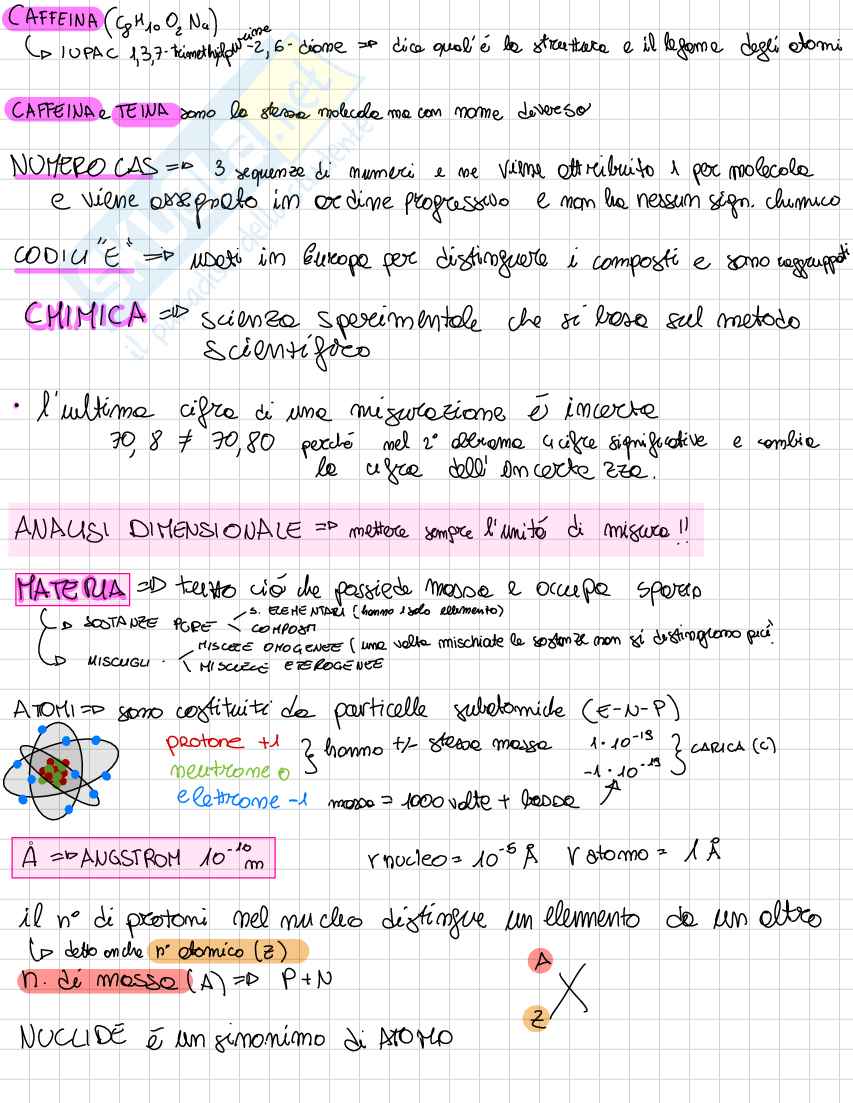 CAFFEINA (C8H10O2N4)
↳ IUPAC 1,3,7-trimethylpurine-2,6-dione => dice qual'è la struttura e il legame degli atomi
CAFFEINA e TEINA sono la stessa molecola ma con nome devereso
NUMERO CAS => 3 sequenze di numeri e ne viene attribuito 1 per molecola
e viene assegnato in ordine progressivo e non ha nessun sign. chimico
CODICI "E" => usati in Europa per distinguere i composti e sono raggruppati
CHIMICA => scienza sperimentale che si basa sul metodo
scientifico
• l'ultima cifra di una misurazione é incerta
70,8 ≠ 70,80 perché nel 2° abbiamo 4 cifre significative e cambia
la cifra dell'incertezza.
ANALISI DIMENSIONALE => mettere sempre l'unitá di misura!!
MATERIA => tutto ció che possiede massa e occupa spazio
↳ SOSTANZE PURE < S. ELEMENTARI (hanno 1 solo elemento)
COMPOSTI
↳ MISCUGLI . < MISCELE OMOGENEE (una volta mischiate le sostanze non si distinguono più)
MISCELE ETEROGENEE
ATOMI => sono costituiti da particelle subatomiche (E-N-P)
protone +1 } hanno +/- stessa massa 1·10⁻¹⁹ } CARICA (C)
neutrone 0 -1·10⁻¹⁹
elettrone -1 massa = 1000 volte + bassa
Å => ANGSTROM 10⁻¹⁰ m r nucleo = 10⁻⁵ Å r atomo = 1 Å
il n° di protoni nel nucleo distingue un elemento da un altro
↳ detto anche n° atomico (Z)
n. di massa (A) => P+N
A
X
Z
NUCLIDE é un sinonimo di ATOMO
SKUOLA.net
il paradiso dello studente